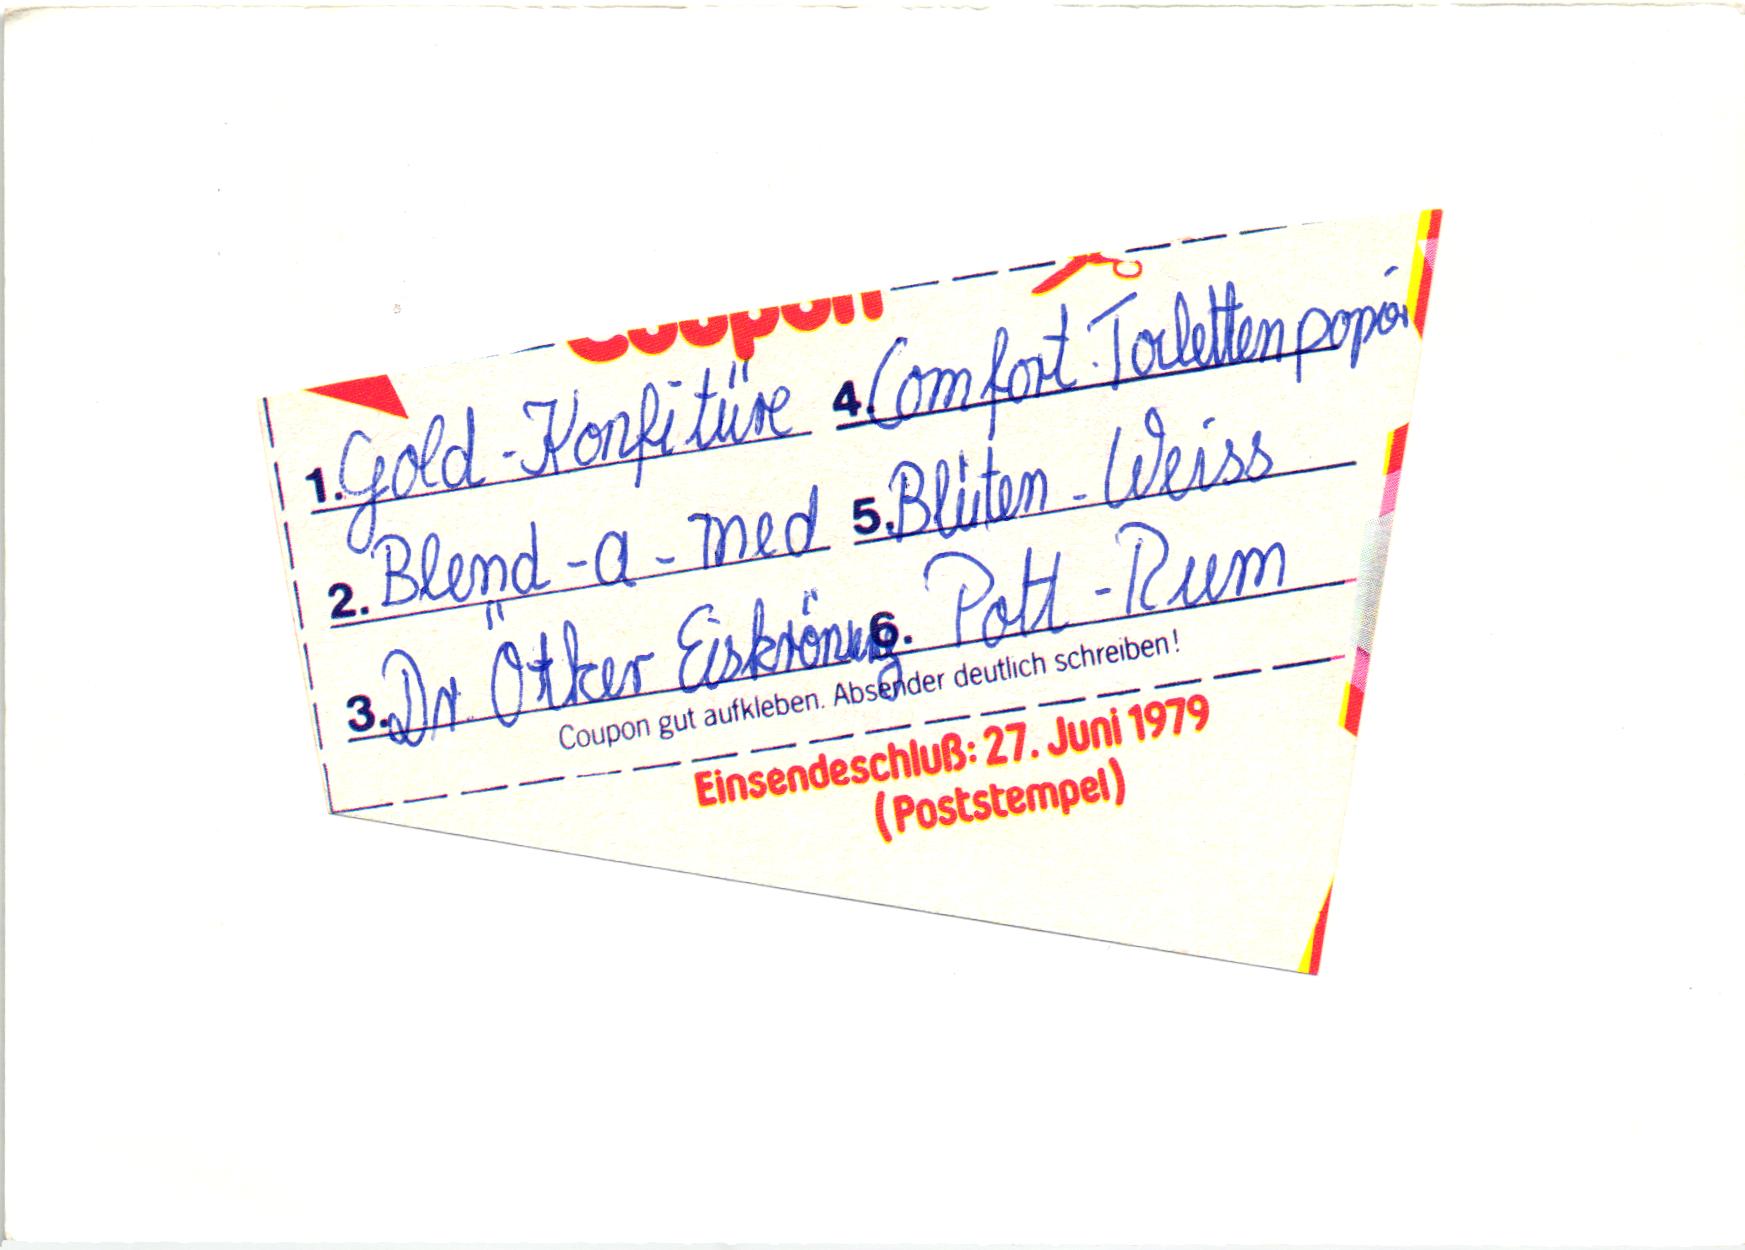 Coupon
1. Gold-Konfitüre
2. Blend-a-med
3. Dr. Ötker Eiskrönung
4. Comfort-Toilettenpapier
5. Blüten-Weiss
6. Pott-Rum
Coupon gut aufkleben. Absender deutlich schreiben!
Einsendeschluß: 27. Juni 1979
(Poststempel)